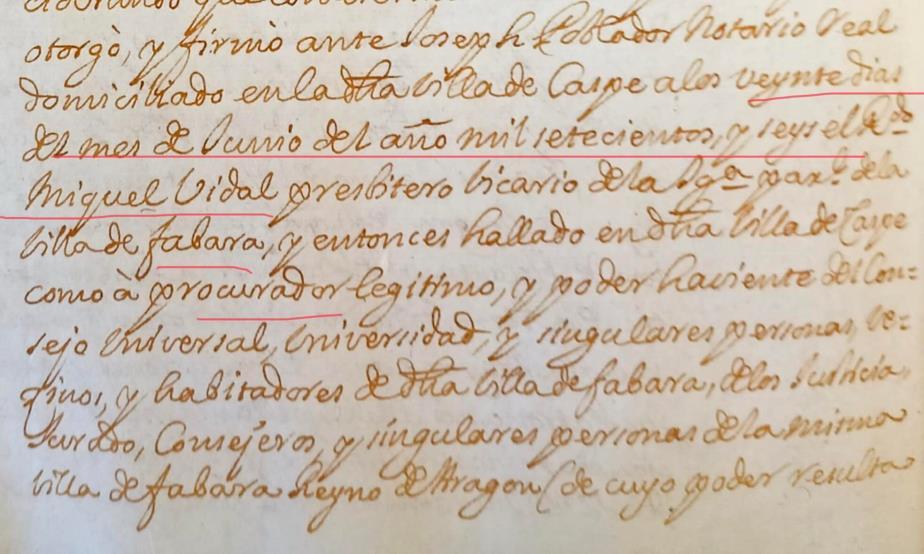 otorgò, y firmò ante Joseph Poblador Notario Real
domiciliado en la dha villa de Caspe a los veynte dias
del mes de Junio del año mil setecientos, y seys el Rdo
Miquel Vidal presbitero Vicario de la Iga parl. de la
Villa de fabara, y entonces hallado en dha Villa de Caspe
como à procurador legitimo, y poder haviente del Con=
sejo Vniversal, Vniversidad, y singulares personas, ve=
zinos, y habitadores de dha villa de fabara, de los Justicia,
Jurado, Consejeros, y singulares personas de la misma
villa de fabara Reyno de Aragon (de cuyo poder resulta